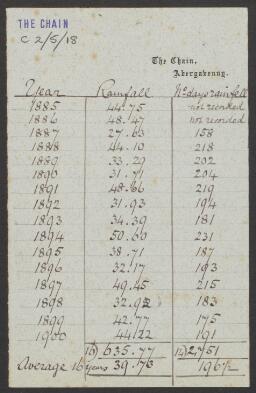 THE CHAIN
C 2/5/18
The Chain,
Abergavenny.
Year Rainfall No days rainfell
1885 44.75 not recorded
1886 48.47 not recorded
1887 27.63 158
1888 44.10 218
1889 33.29 202
1890 31.71 204
1891 48.66 219
1892 31.93 194
1893 34.39 181
1894 50.60 231
1895 38.71 187
1896 32.17 193
1897 49.45 215
1898 32.92 183
1899 42.77 175
1900 44.22 191
16) 635.77 14) 2751
Average 16 years 39.73 196½